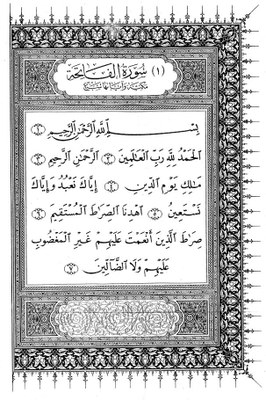 (١) سُورَةُ الْفَاتِحَةِ
مكيّة وآياتها سبع
بِسْمِ اللَّهِ الرَّحْمَٰنِ الرَّحِيمِ ١
الْحَمْدُ لِلَّهِ رَبِّ الْعَالَمِينَ ٢ الرَّحْمَٰنِ الرَّحِيمِ ٣
مَالِكِ يَوْمِ الدِّينِ ٤ إِيَّاكَ نَعْبُدُ وَإِيَّاكَ
نَسْتَعِينُ ٥ اهْدِنَا الصِّرَاطَ الْمُسْتَقِيمَ ٦
صِرَاطَ الَّذِينَ أَنْعَمْتَ عَلَيْهِمْ غَيْرِ الْمَغْضُوبِ
عَلَيْهِمْ وَلَا الضَّالِّينَ ٧